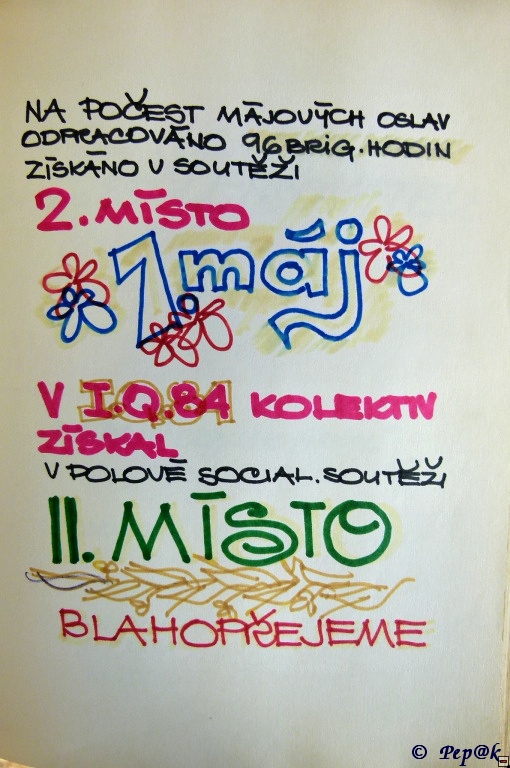 NA POČEST MÁJOVÝCH OSLAV
ODPRACOVÁNO 96 BRIG. HODIN
ZÍSKÁNO V SOUTĚŽI
2. MÍSTO
1. máj
V I.Q.84 KOLEKTIV
ZÍSKAL
V POLOVĚ SOCIAL. SOUTĚŽI
II. MÍSTO
BLAHOPŘEJEME
© Pep@k